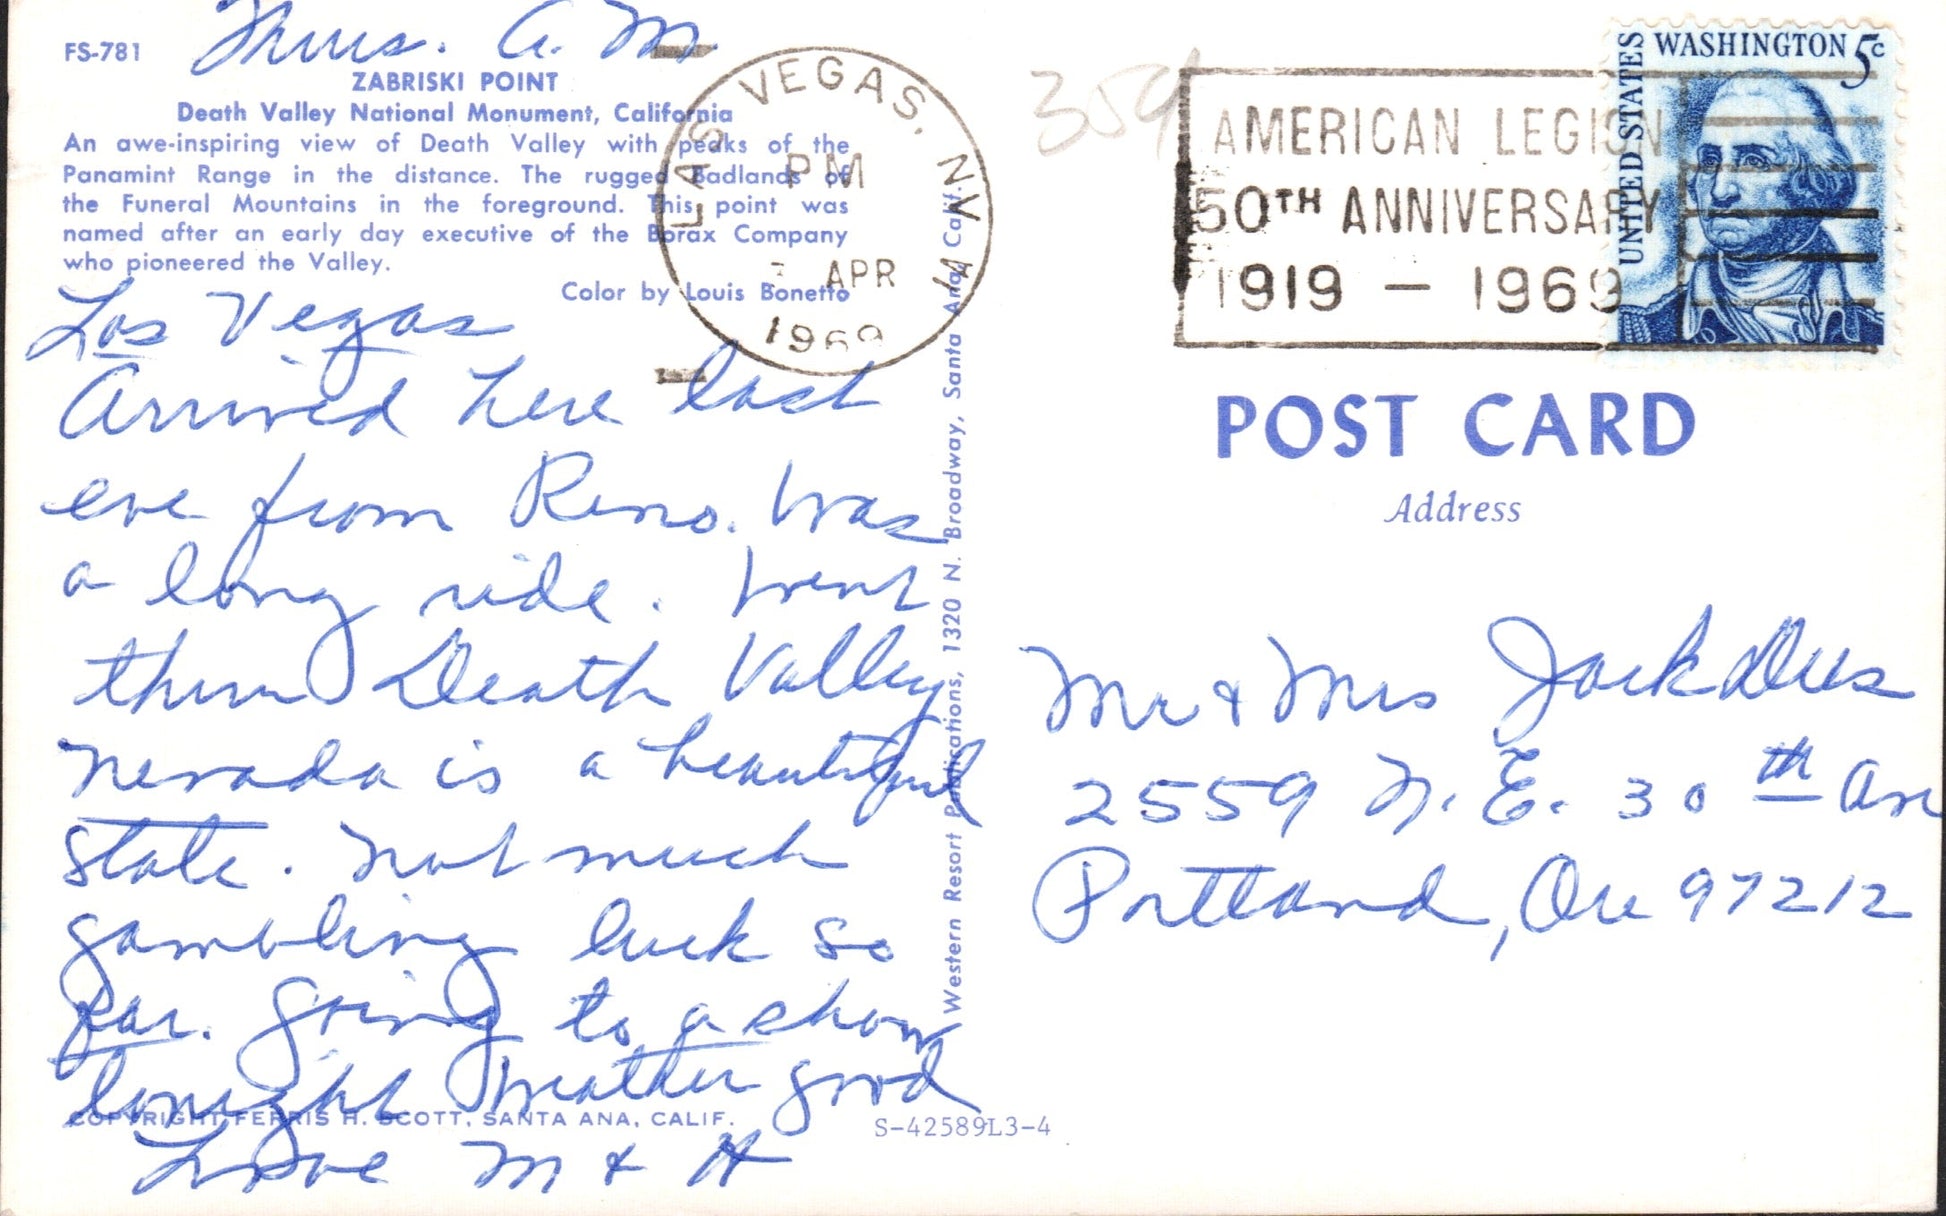 Thurs. A.M
FS-781
ZABRISKI POINT
Death Valley National Monument, California
An awe-inspiring view of Death Valley with peaks of the
Panamint Range in the distance. The rugged Badlands of
the Funeral Mountains in the foreground. This point was
named after an early day executive of the Borax Company
who pioneered the Valley.
Color by Louis Bonetto
Las Vegas
Arrived here last
eve from Reno. Was
a long ride. Went
thru Death Valley
Nevada is a beautiful
state. Not much
gambling luck so
far. Going to a show
tonight Weather good
Love M & H
COPYRIGHT FERRIS H. SCOTT, SANTA ANA, CALIF.
S-42589L3-4
Western Resort Publications, 1320 N. Broadway, Santa Ana, Calif.
LAS VEGAS, NV
PM
APR
1969
359
AMERICAN LEGION
50TH ANNIVERSARY
1919 — 1969
UNITED STATES
WASHINGTON 5c
POST CARD
Address
Mr & Mrs Jack Dues
2559 N.E. 30th Av
Portland, Ore 97212